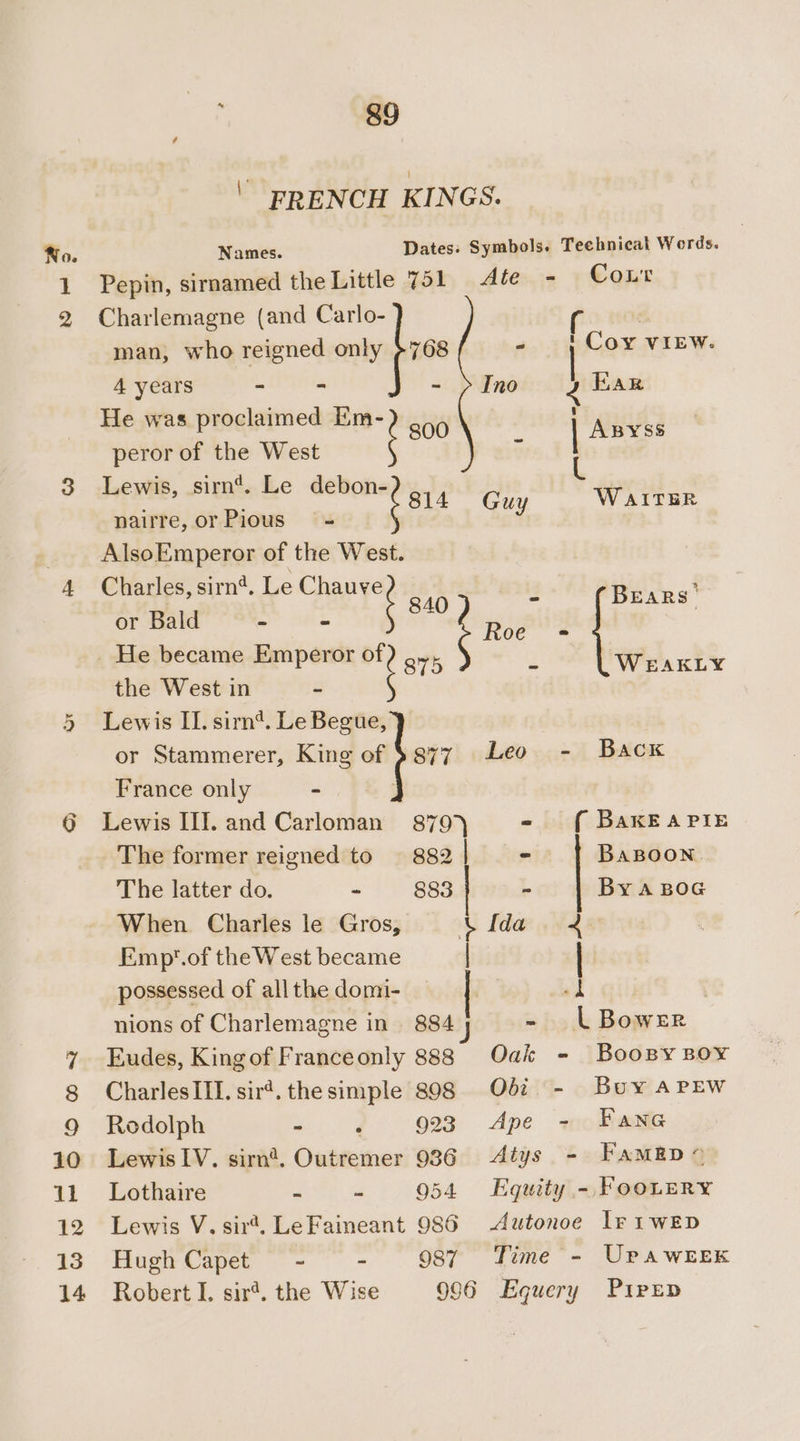 89
FRENCH KINGS.
No. Names. Dates. Symbols. Technical Words.
1 Pepin, sirnamed the Little 751 Ate - Colt
2 Charlemagne (and Carlo-
man, who reigned only 768 - Coy view.
4 years - - - Ino Ear
He was proclaimed Em-
peror of the West 800 - Abyss
3 Lewis, sirnd. Le debon-
nairre, or Pious - 814 Guy Waiter
Also Emperor of the West.
4 Charles, sirnd. Le Chauve
or Bald - - 840 - Bears
Roe -
He became Emperor of
the West in - 875 - Weakly
5 Lewis II. sirnd. Le Begue,
or Stammerer, King of 877 Leo - Back
France only -
6 Lewis III. and Carloman 879 - Bake a pie
The former reigned to 882 - Baboon
The latter do. - 883 - By a bog
When Charles le Gros, Ida
Empr. of the West became
possessed of all the domi-
nions of Charlemagne in 884 - Bower
7 Eudes, King of France only 888 Oak - Booby boy
8 Charles III. sird. the simple 898 Obi - Buy a pew
9 Rodolph - . 923 Ape - Fang
10 Lewis IV. sirnd. Outremer 936 Atys - Famed
11 Lothaire - - 954 Equity - Foolery
12 Lewis V. sird. Le Faineant 986 Autonoe If i wed
13 Hugh Capet - - 987 Time - Up a week
14 Robert I. sird. the Wise 996 Equery Piped